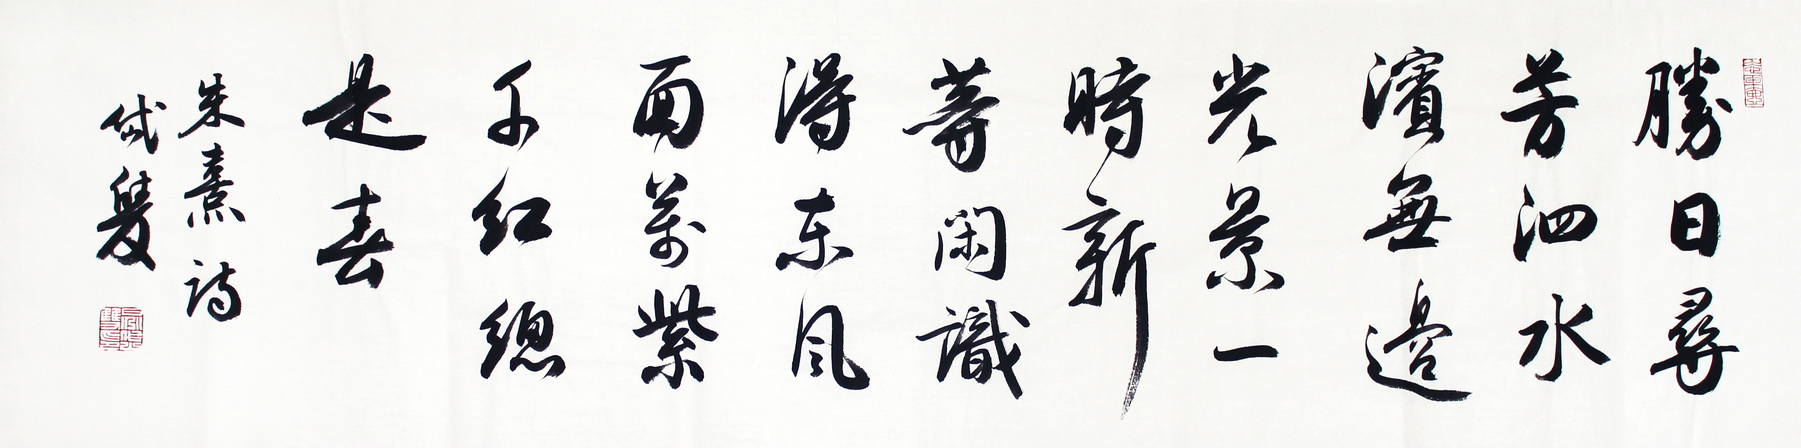 勝日尋
芳泗水
濱無邊
光景一
時新
等閑識
得东风
面萬紫
千紅總
是春
朱熹詩